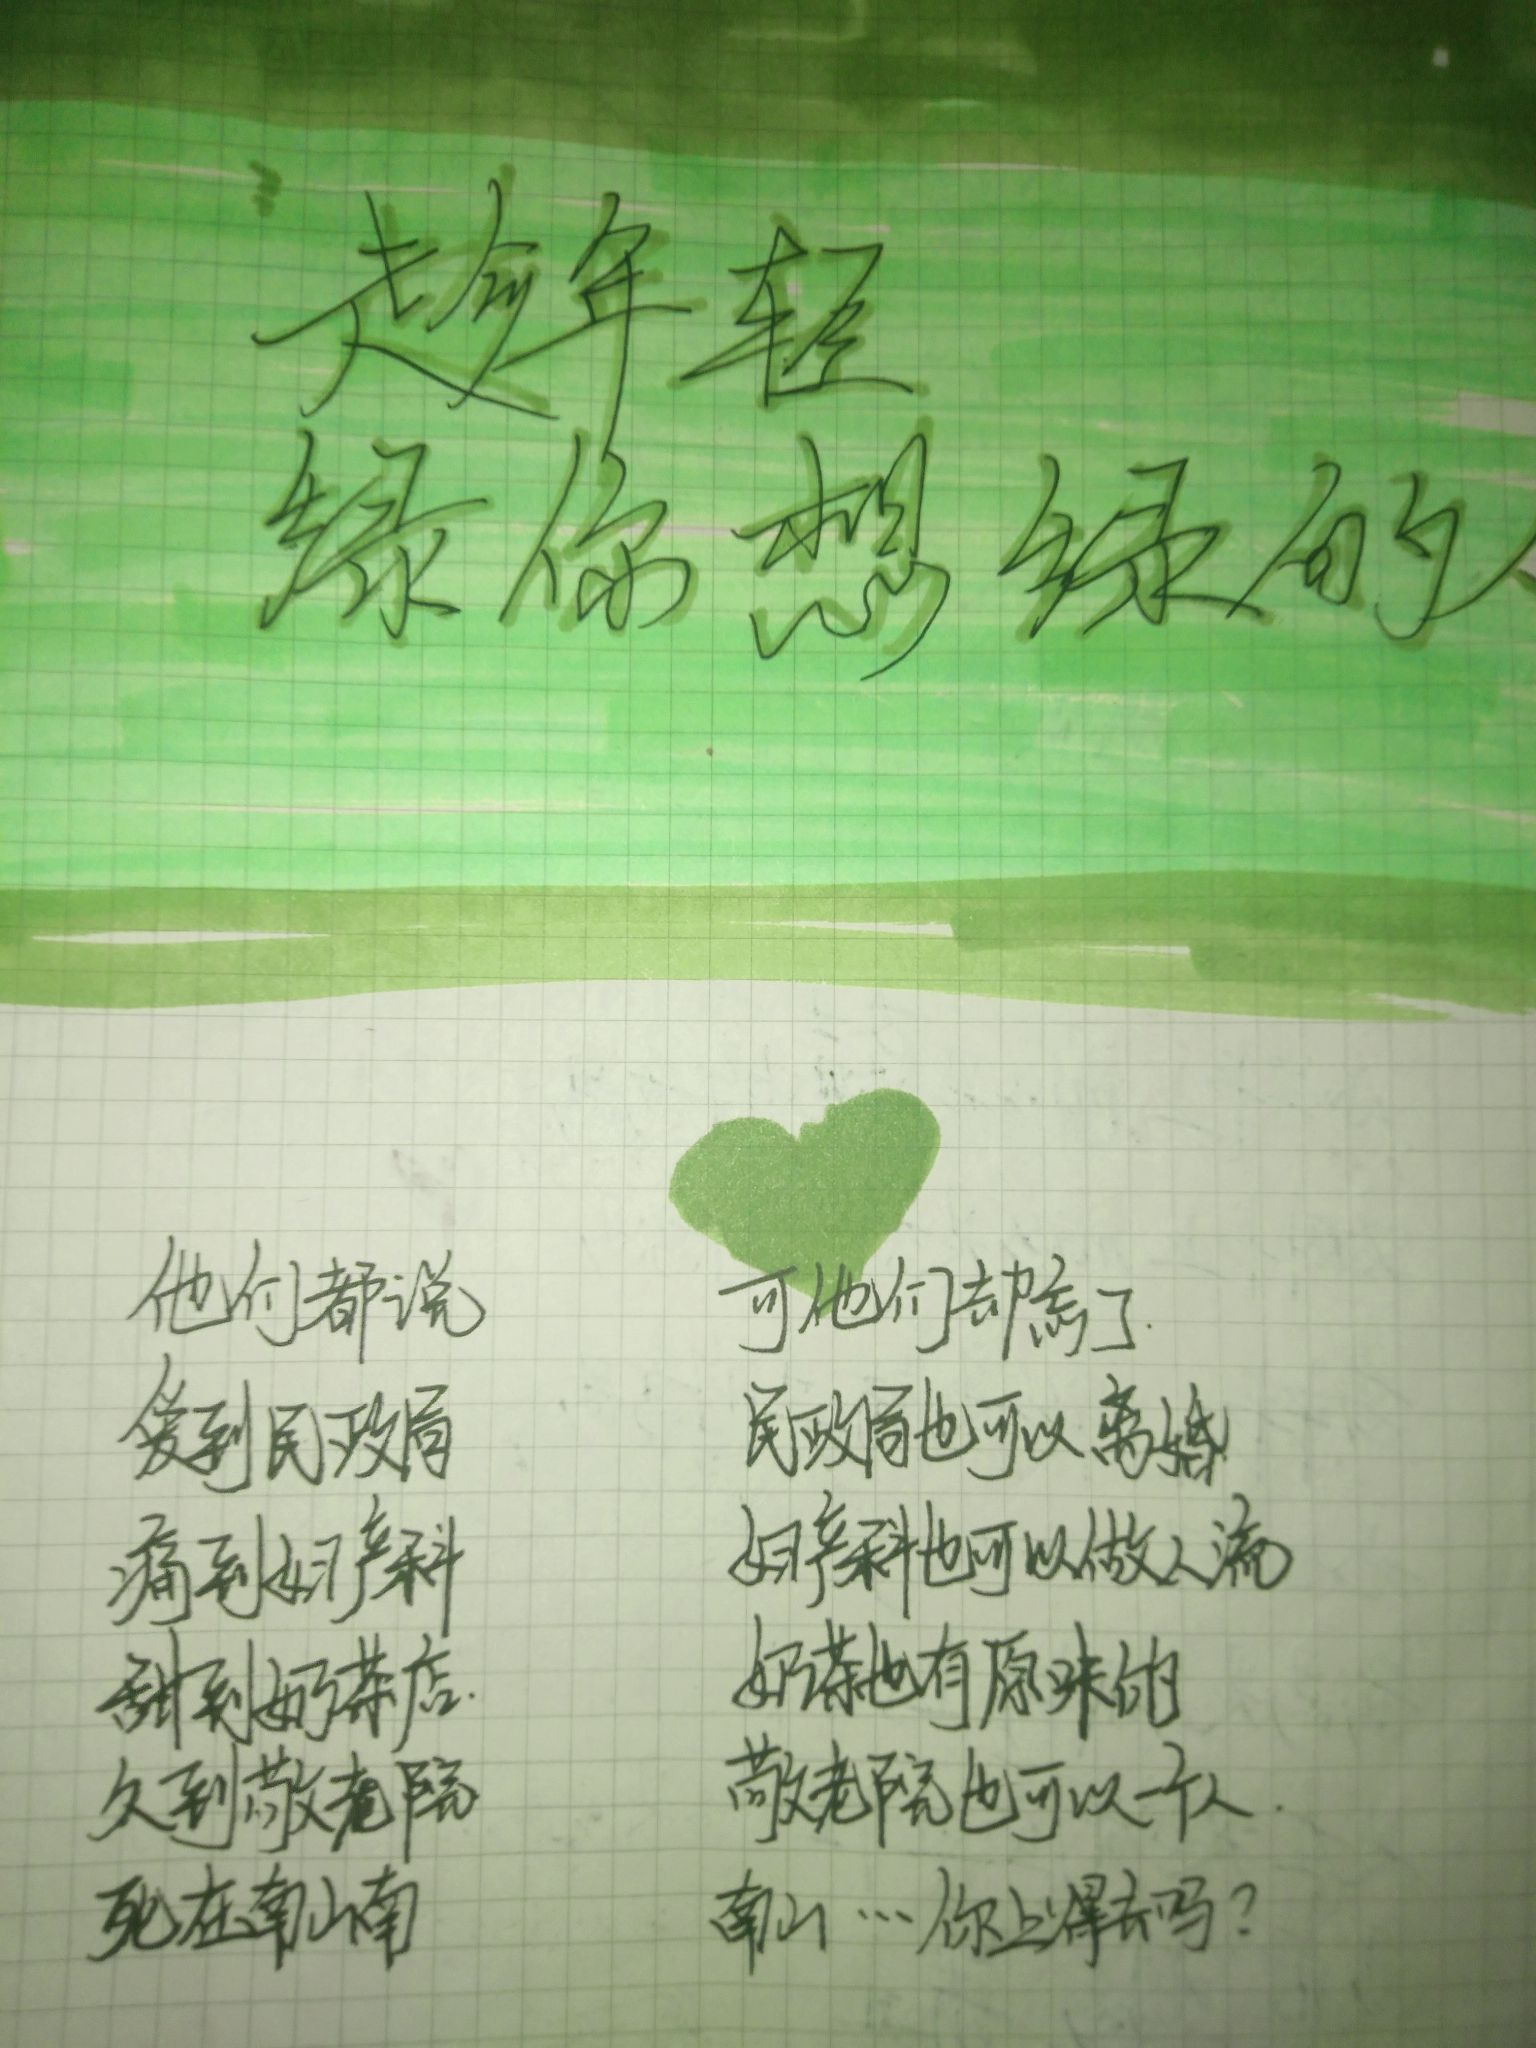 趁年轻
绿你想绿的人
他们都说
爱到民政局
痛到妇产科
甜到奶茶店.
久到敬老院
死在南山南
可他们却忘了.
民政局也可以离婚
妇产科也可以做人流
奶茶也有原味的
敬老院也可以一个人.
南山…你上得去吗?